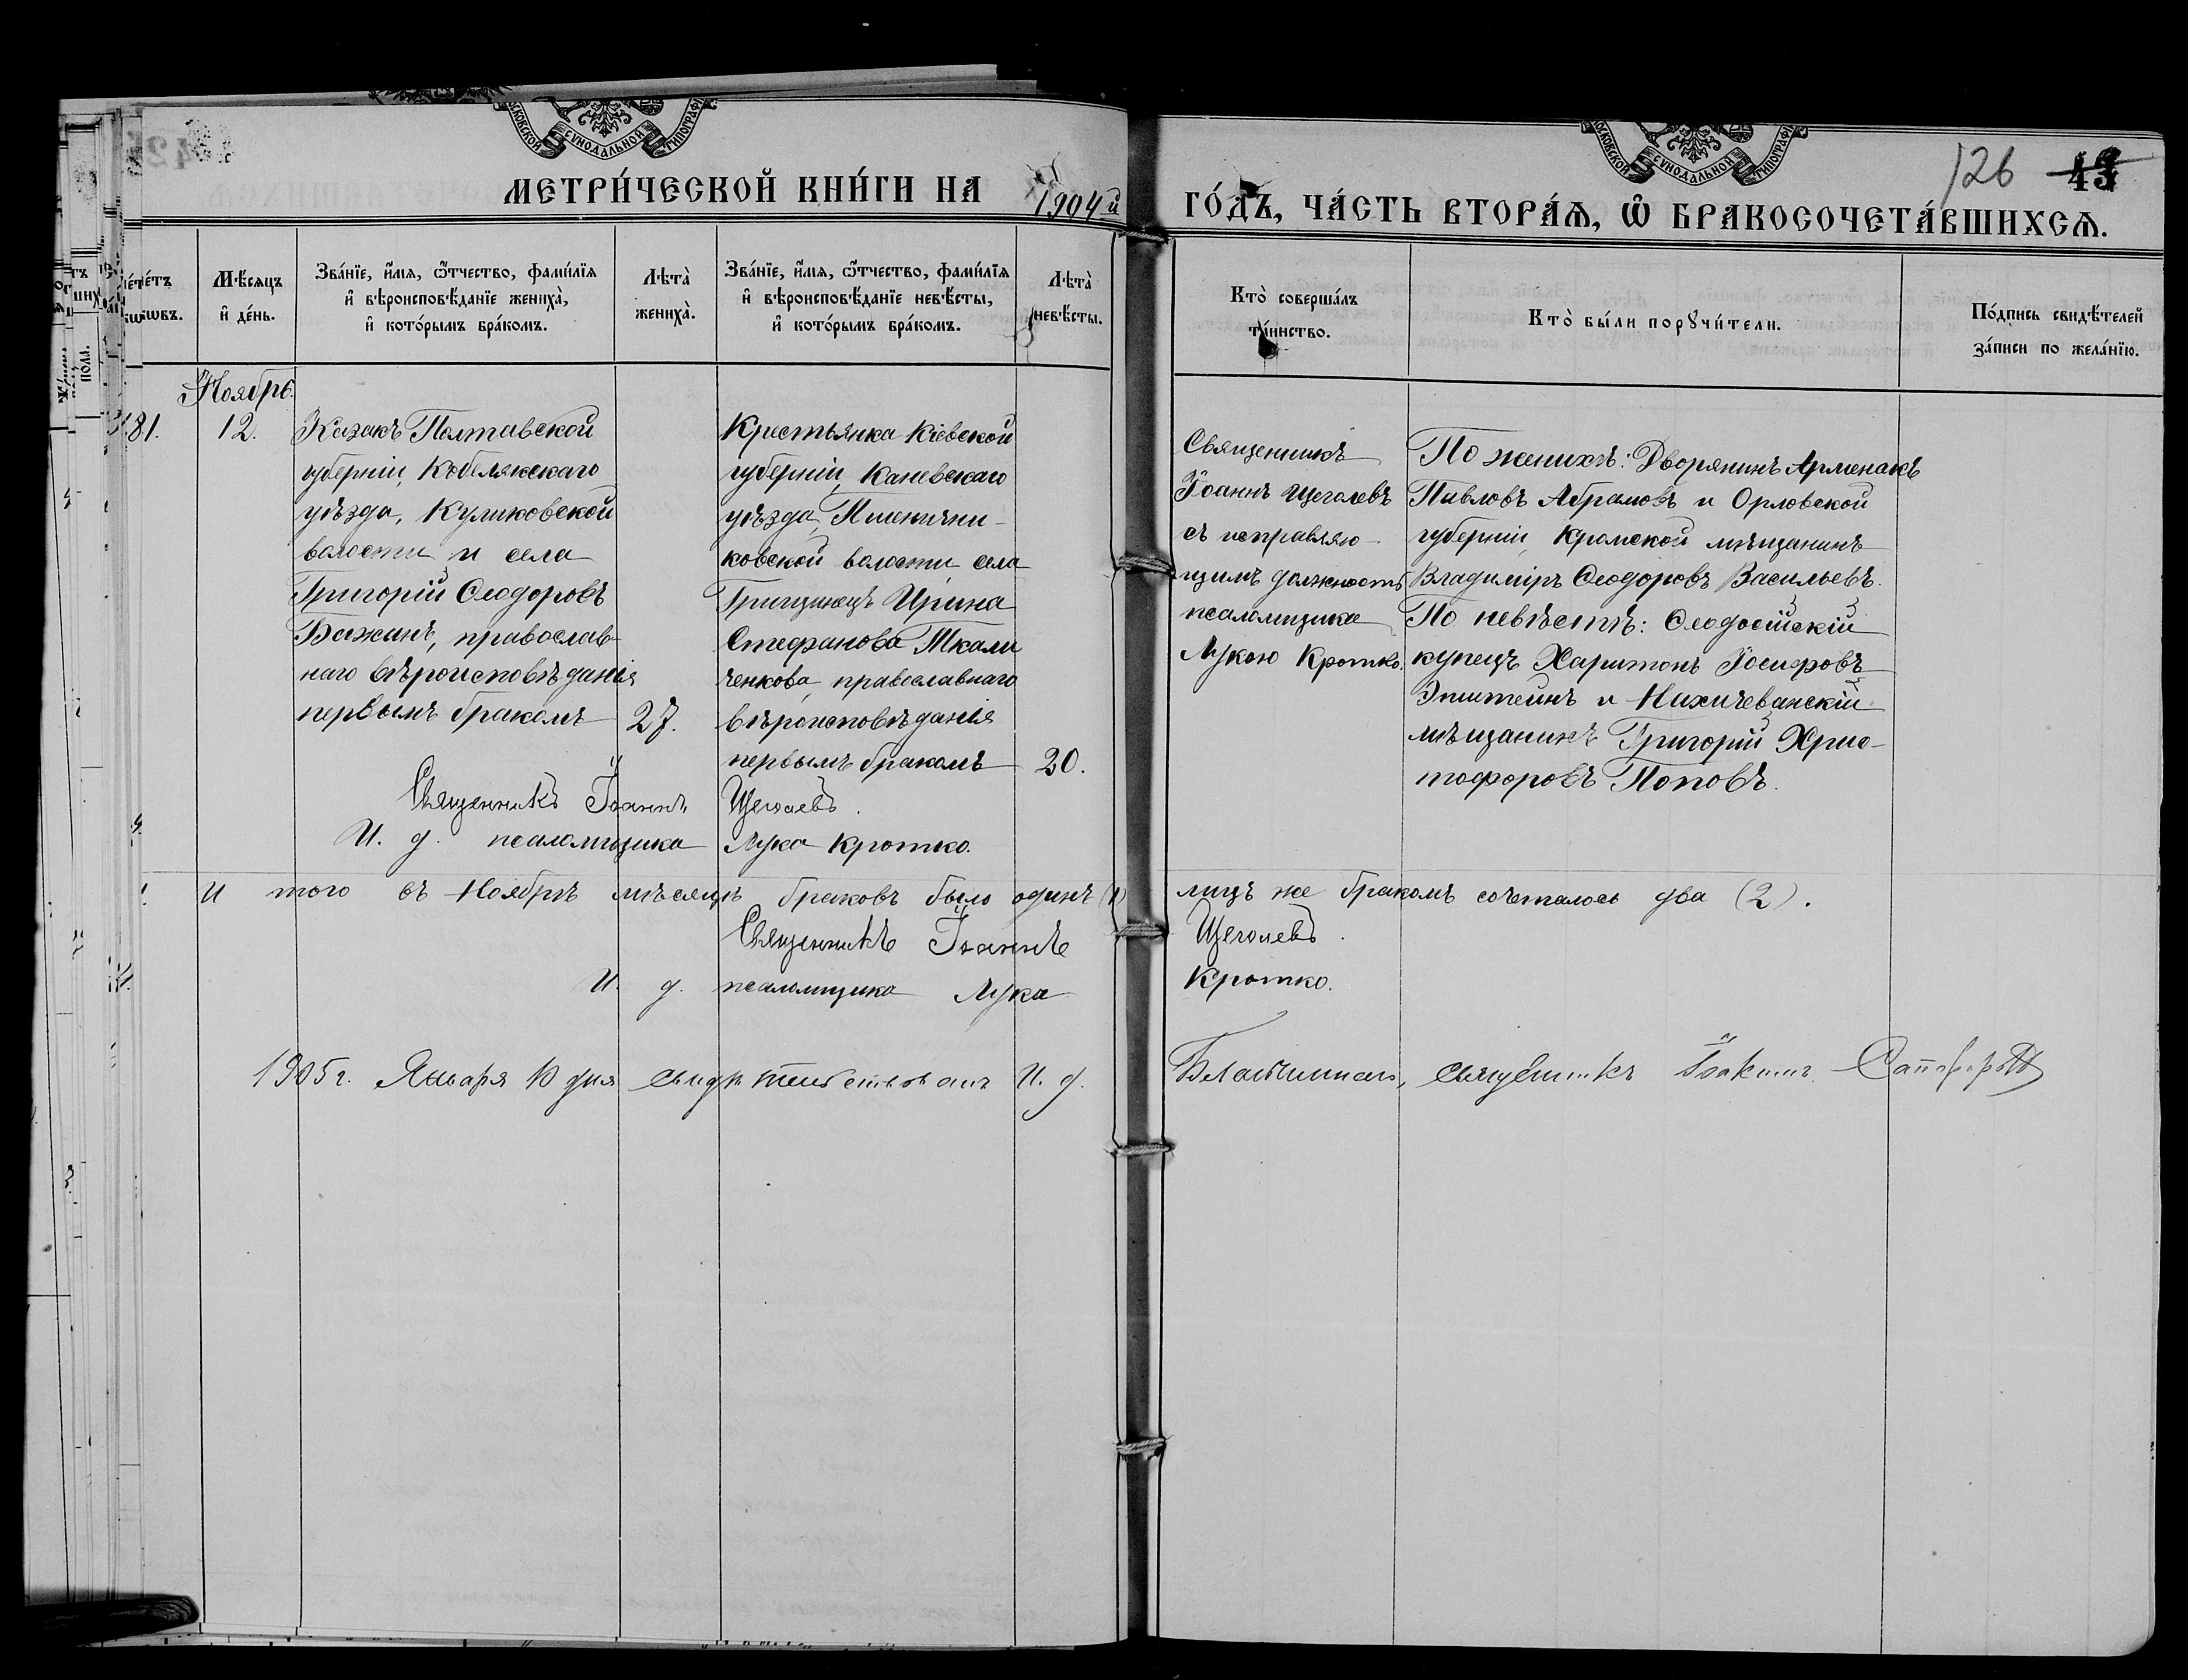 МОСКОВСКОЙ СУНОДАЛЬНОЙ ТИПОГРАФІ
МОСКОВСКОЙ СУНОДАЛЬНОЙ ТИПОГРАФІ
126 43
МЕТРИ́ЧЕСКОЙ КНИ́ГИ НА 1904й ГО́ДЪ, ЧА́СТЬ ВТОРА́Ѧ, Ѽ БРАКОСОЧЕТА́ВШИХСѦ.
Мѣ́сяцъ
и҆ де́нь.
Зва́нїе, и҆́мѧ, ѻ҆́тчество, фами́лїѧ
и҆ вѣроисповѣ́данїе жениха̀,
и҆ кото́рымъ бра́комъ.
Лѣта̀
жениха̀.
Зва́нїе, и҆́мѧ, ѻ҆́тчество, фами́лїѧ
и҆ вѣроисповѣ́данїе невѣ́сты,
и҆ кото́рымъ бра́комъ.
Лѣта̀
невѣ́сты.
Кто̀ соверша́лъ
та́инство.
Кто̀ бы́ли порꙋчи́тели.
По́дпись свидѣ́телей
за́писи по жела́нїю.
Ноябрь.
81.
12.
Казакъ Полтавской
губерніи, Кобелякскаго
уѣзда, Куликовской
волости и села
Григорій Ѳеодоровъ
Бажанъ, православ-
наго вѣроисповѣданія
первымъ бракомъ
27.
Крестьянка Кіевской
губерніи, Каневскаго
уѣзда, Пшенични-
ковской волости села
Грищинецъ Ирина
Стефанова Ткали
ченкова, православнаго
вѣроисповѣданія
первымъ бракомъ
20.
Священникъ
Іоаннъ Щеголевъ
съ исправляю-
щимъ должность
псаломщика
Лукою Кротко.
По женихѣ: Дворянинъ Арменакъ
Павловъ Абрамовъ и Орловской
губерніи, Кромской мѣщанинъ
Владиміръ Ѳеодоровъ Васильевъ.
По невѣстѣ: Ѳеодосійскій
купецъ Харитонъ Іосифовъ
Эпштейнъ и Нахичеванскій
мѣщанинъ Григорій Хрис-
тофоровъ Поповъ.
Священникъ Іоаннъ Щеголевъ.
И. д. псаломщика Лука Кротко.
И того въ Ноябрѣ мѣсяцѣ браковъ было одинъ (1) лицъ же бракомъ сочеталось два (2).
Священникъ Іоаннъ Щеголевъ.
И. д. псаломщика Лука Кротко.
1905 г. Января 10 дня свидѣтельствовалъ И. д. Благочиннаго, священникъ